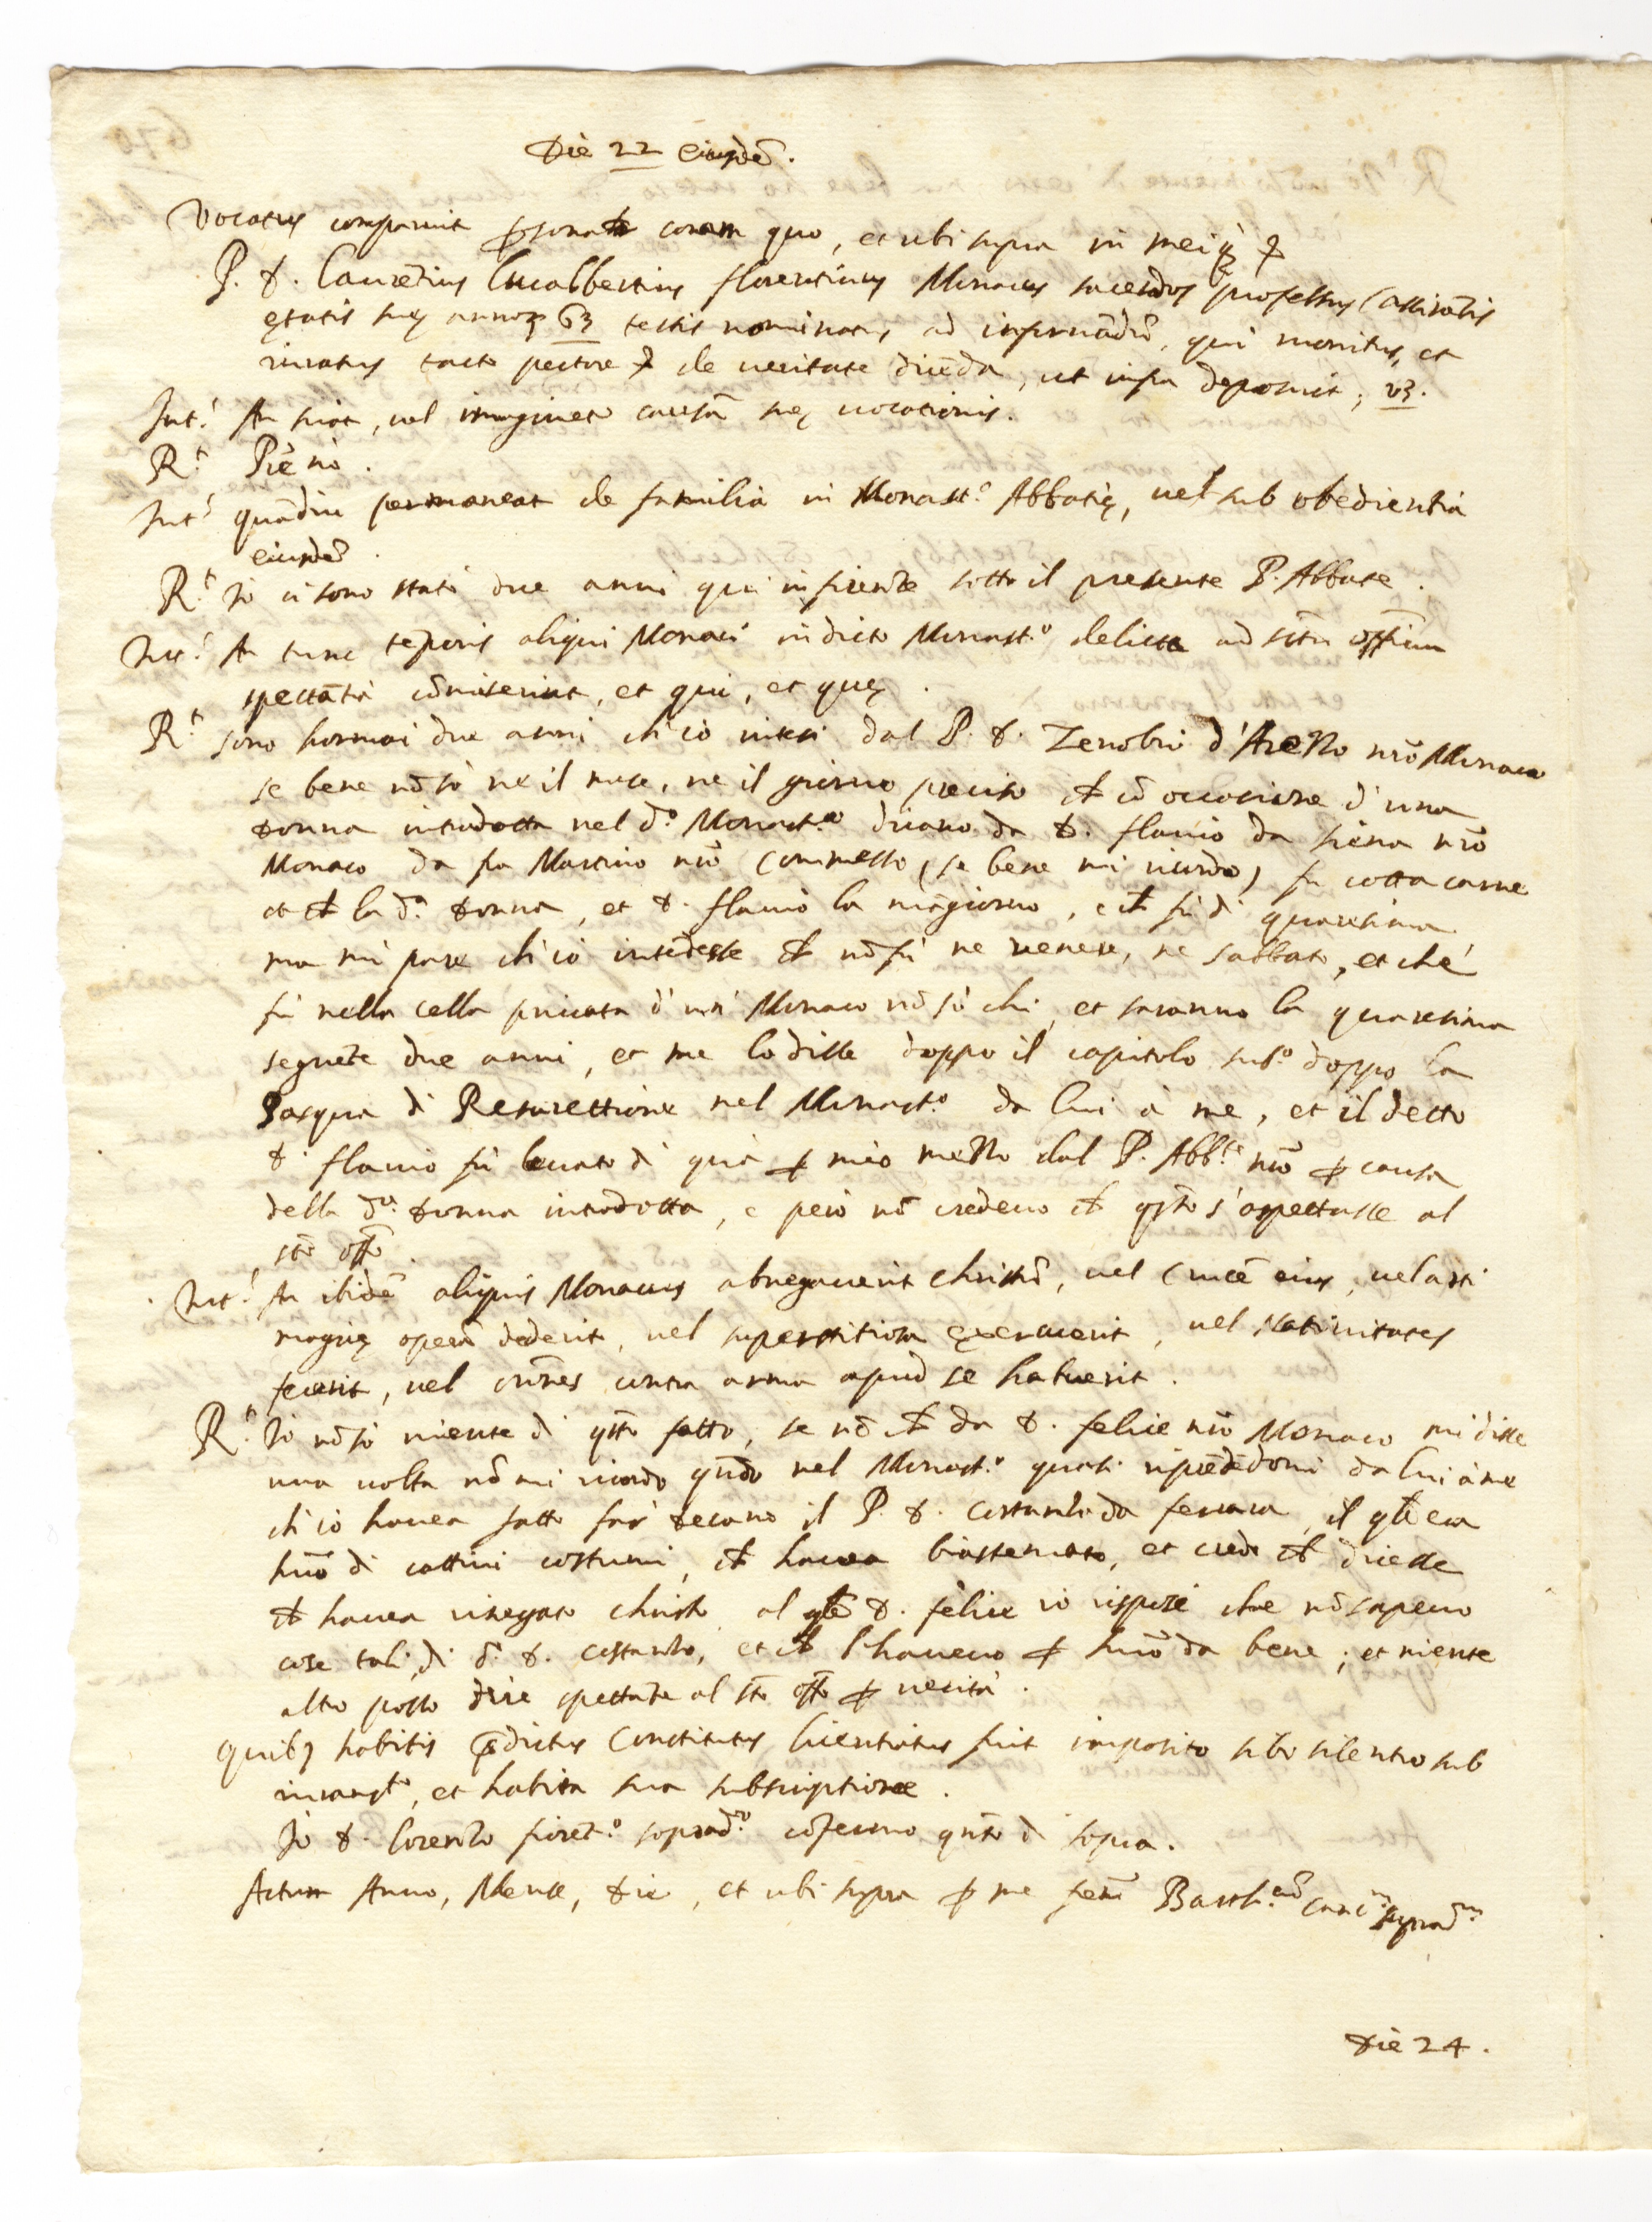 Die 22 eiusdẽ.
Vocatus comparuit psonalr coram quo, et ubi supra in mei q̃ p
P. D. Laurẽtius Lucalbertius florentinus Monacus sacerdos professus Cassinẽsis
ętatis suę annoꝝ 63 testis nominatus ad informãdũ, qui monitus, et
iuratus tacto pectore p de ueritate dicẽda, ut infra deposuit; vꝫ.
Int.s An sciat, uel imaginet causã suę uocationis.
R.t P.rẽ nò.
Int.s quãdiu permaneat de familia in Monast.o Abbatię, uel sub obedientia
eiusdẽ.
R.t Io ci sono stato due anni qui in firenze sotto il presente P. Abbate.
Int.s An tunc tẽporis aliqui Monaci in dicto Monast.o delicta ad sctũ officium
spectãtia cõmiserint, et qui, et quę.
R.t sono hormai due anni ch'io intesi dal P. D. Zenobio d'Arezzo nrõ Monaco
se bene nõ sò ne il mese, ne il giorno preciso ch cõ occasione d'una
donna introdotta nel d.o Monast.o dicano da D. flauio da siena nrõ
Monaco da fra Martino nrõ Commesso (se bene mi ricordo) fu cotta carne
et ch la d.a donna, et D. flauio la mãgiorno, e ch fù di quaresima
ma mi pare ch'io intẽdesse ch nõ fù ne uenere, ne sabbato, et che
fù nella cella priuata d'un Monaco nõ sò chi, et saranno la quaresima
seguẽte due anni, et me lo disse doppo il capitolo sub.o doppo la
Pasqua di Resurettione nel Monast.o da lui à me, et il detto
D. flauio fù leuato di quà p mio mezzo dal P. Abb.te nrõ p causa
della d.a donna introdotta, e però nõ credeuo ch qsto s'aspettasse al
sto offo.
Int.s An ibidẽ aliquis Monacus abnegauerit christũ, uel crucẽ eius, uel arti
magicę operã dederit, uel superstitiosa exercuerit, uel Natiuitates
fecerit, uel orõnes contra arma apud se habuerit.
R.t Io nõ sò niente di qsto fatto, se nõ ch da D. felice nrõ Monaco mi disse
una uolta nõ mi ricordo qñdo nel Monast.o quasi ripredẽdomi da lui à me
ch'io hauea fatto far decano il P. D. Costanzo da ferrara, il qle era
huõ di cattiui costumi, ch hauea biastemato, et credo ch dicesse
ch hauea rinegato christo al qle D. felice io rispose che nõ sapeuo
cose tali, di d.o D. Costanzo, et ch l'haueuo p huõ da bene; et niente
altro posso dire spettãte al sto offo p uerità.
Quibꝫ habitis pdictus Constitutus licentiatus fuit imposito sibi silentio sub
iuramto, et habita sua subscriptione.
Io D. Lorenzo fioret.o soprad.o cõfermo qñto di sopra.
Actum Anno, Mense, Die, et ubi supra p me Barth.eũ canc.m suprad.m
Die 24.